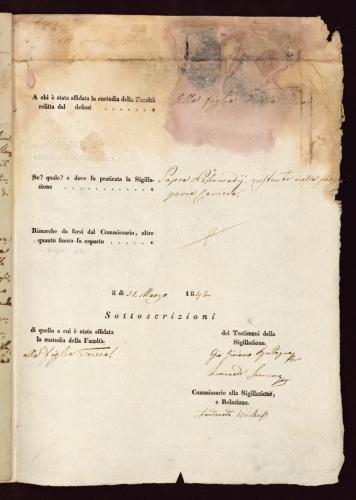 A chi è stata affidata la custodia della Facoltà
relitta dal defont
Alla figlia
Se? quale? e dove fu praticata la Sigilla-
zione
Sopra
esistente nella
camera
Rimarche da farsi dal Commissario, oltre
quanto finora fu esposto
il dì 31. Marzo 1848.
Sottoscrizioni
di quello a cui è stata affidata
la custodia della Facoltà.
alla figlia Teresa
dei Testimonj della
Sigillazione.
Commissario alla Sigillazione,
e Relazione.